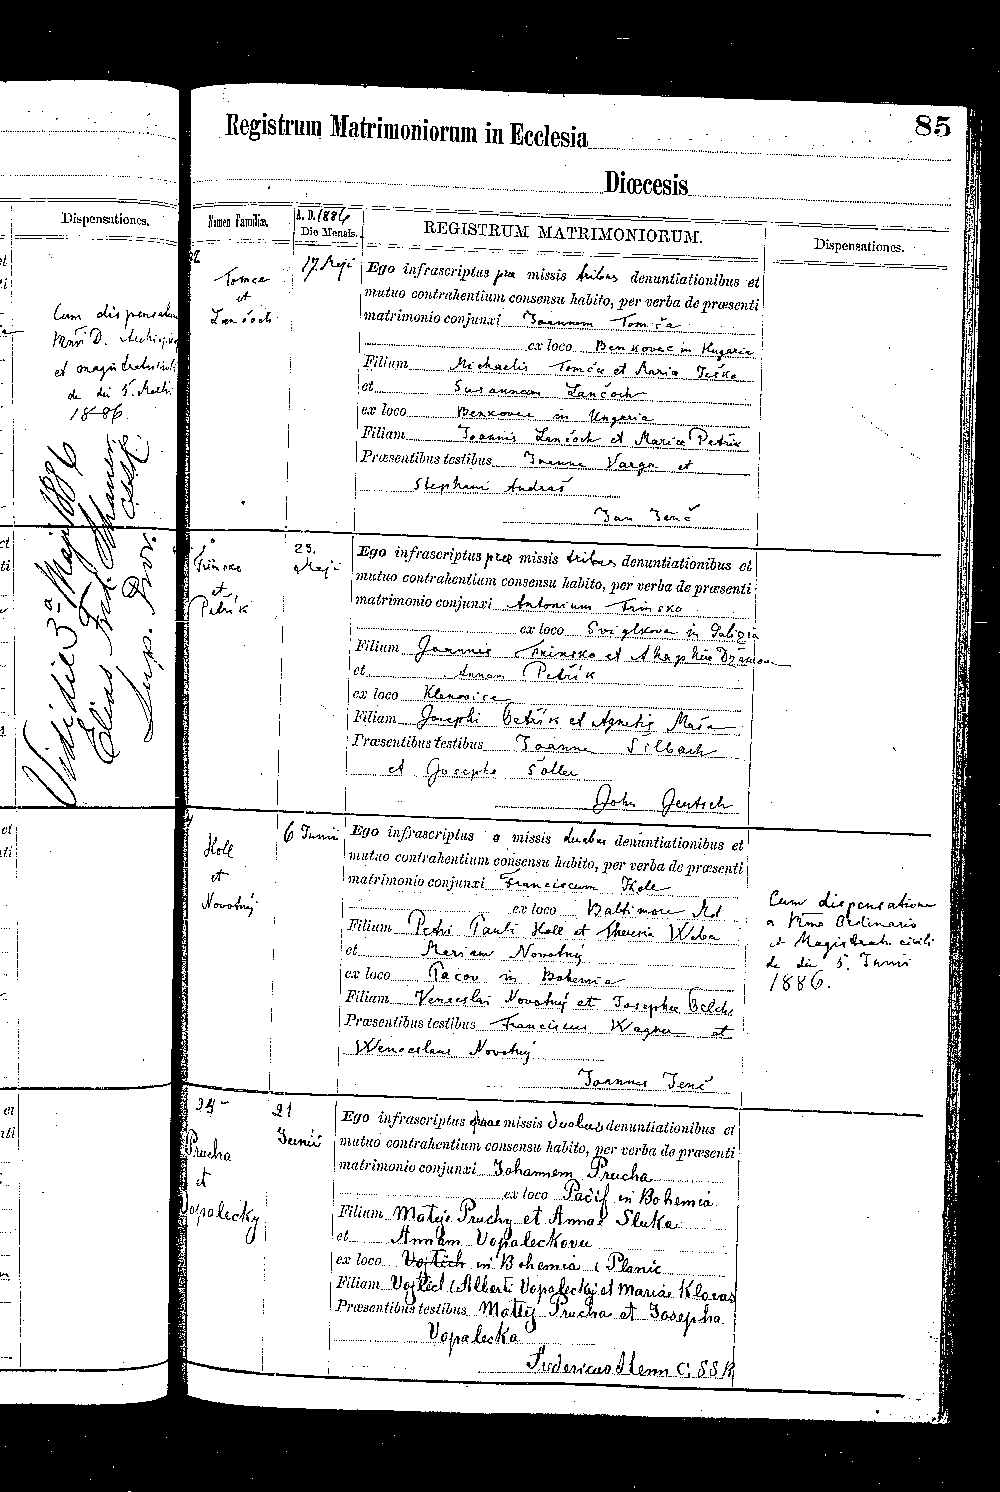 Registrum Matrimoniorum in Ecclesia
85
Diœcesis
Dispensationes.
Nomen Familiæ.
A. D. 1886
Die Mensis.
REGISTRUM MATRIMONIORUM.
Dispensationes.
Cum dispensatione
D.
et magistratus civili
de die 5. Martii
1886.
Vidi die 3a Maji 1886
Elias Fred. Schauer
Sup. Prov. CSSR.
Tomča
et
Lančoch
17. Maji
Ego infrascriptus præ missis tribus denuntiationibus et
mutuo contrahentium consensu habito, per verba de præsenti
matrimonio conjunxi Joannem Tomča
ex loco Benkovec in Hugaria
Filium Michaelis Tomča et Maria Ješka
et Susannam Lančoch
ex loco Benkovec in Ungaria
Filiam Joannis Lančoch et Mariæ Petrik
Præsentibus testibus Joanne Varga et
Stephani Andraš
Jan Jenč
Trinsko
et
Petřík
25.
Maji
Ego infrascriptus præ missis tribus denuntiationibus et
mutuo contrahentium consensu habito, per verba de præsenti
matrimonio conjunxi Antonium Trinsko
ex loco Sviglkova in Galizia
Filium Joannis Trinsko et
et Annam Petřík
ex loco Klenovice
Filiam Josephi Petřík et Agnetis Maša
Præsentibus testibus Joanne Silbach
et Josepho Soller
John Jentsch
Koll
et
Novotný
6 Junii
Ego infrascriptus a missis duabus denuntiationibus et
mutuo contrahentium consensu habito, per verba de præsenti
matrimonio conjunxi Franciscum Kole
ex loco Baltimore Md
Filium Petri Pauli Koll et Theresia Weber
et Mariam Novotný
ex loco Pacov in Bohemia
Filiam Venceslai Novotný et Josephæ
Præsentibus testibus Franciscus Wagner et
Wenceslaus Novotný
Joannes Jenč
Cum dispensatione
a Rmo Ordinario
et Magistratu civili
de die 5. Junii
1886.
Prucha
et
Vopalecky
21
Junii
Ego infrascriptus præ missis duabus denuntiationibus et
mutuo contrahentium consensu habito, per verba de præsenti
matrimonio conjunxi Johannem Prucha
ex loco Pačif in Bohemia
Filium Mateje Pruchy et Annae Sluka
et Annam Vopaleckovu
ex loco Vojtěch in Bohemia (Planic
Filiam Vojtěch (Alberti Vopalecký et Mariae Klocas
Præsentibus testibus Matěj Prucha et Josepha
Vopalecka
Fridericus Henn C.SS.R